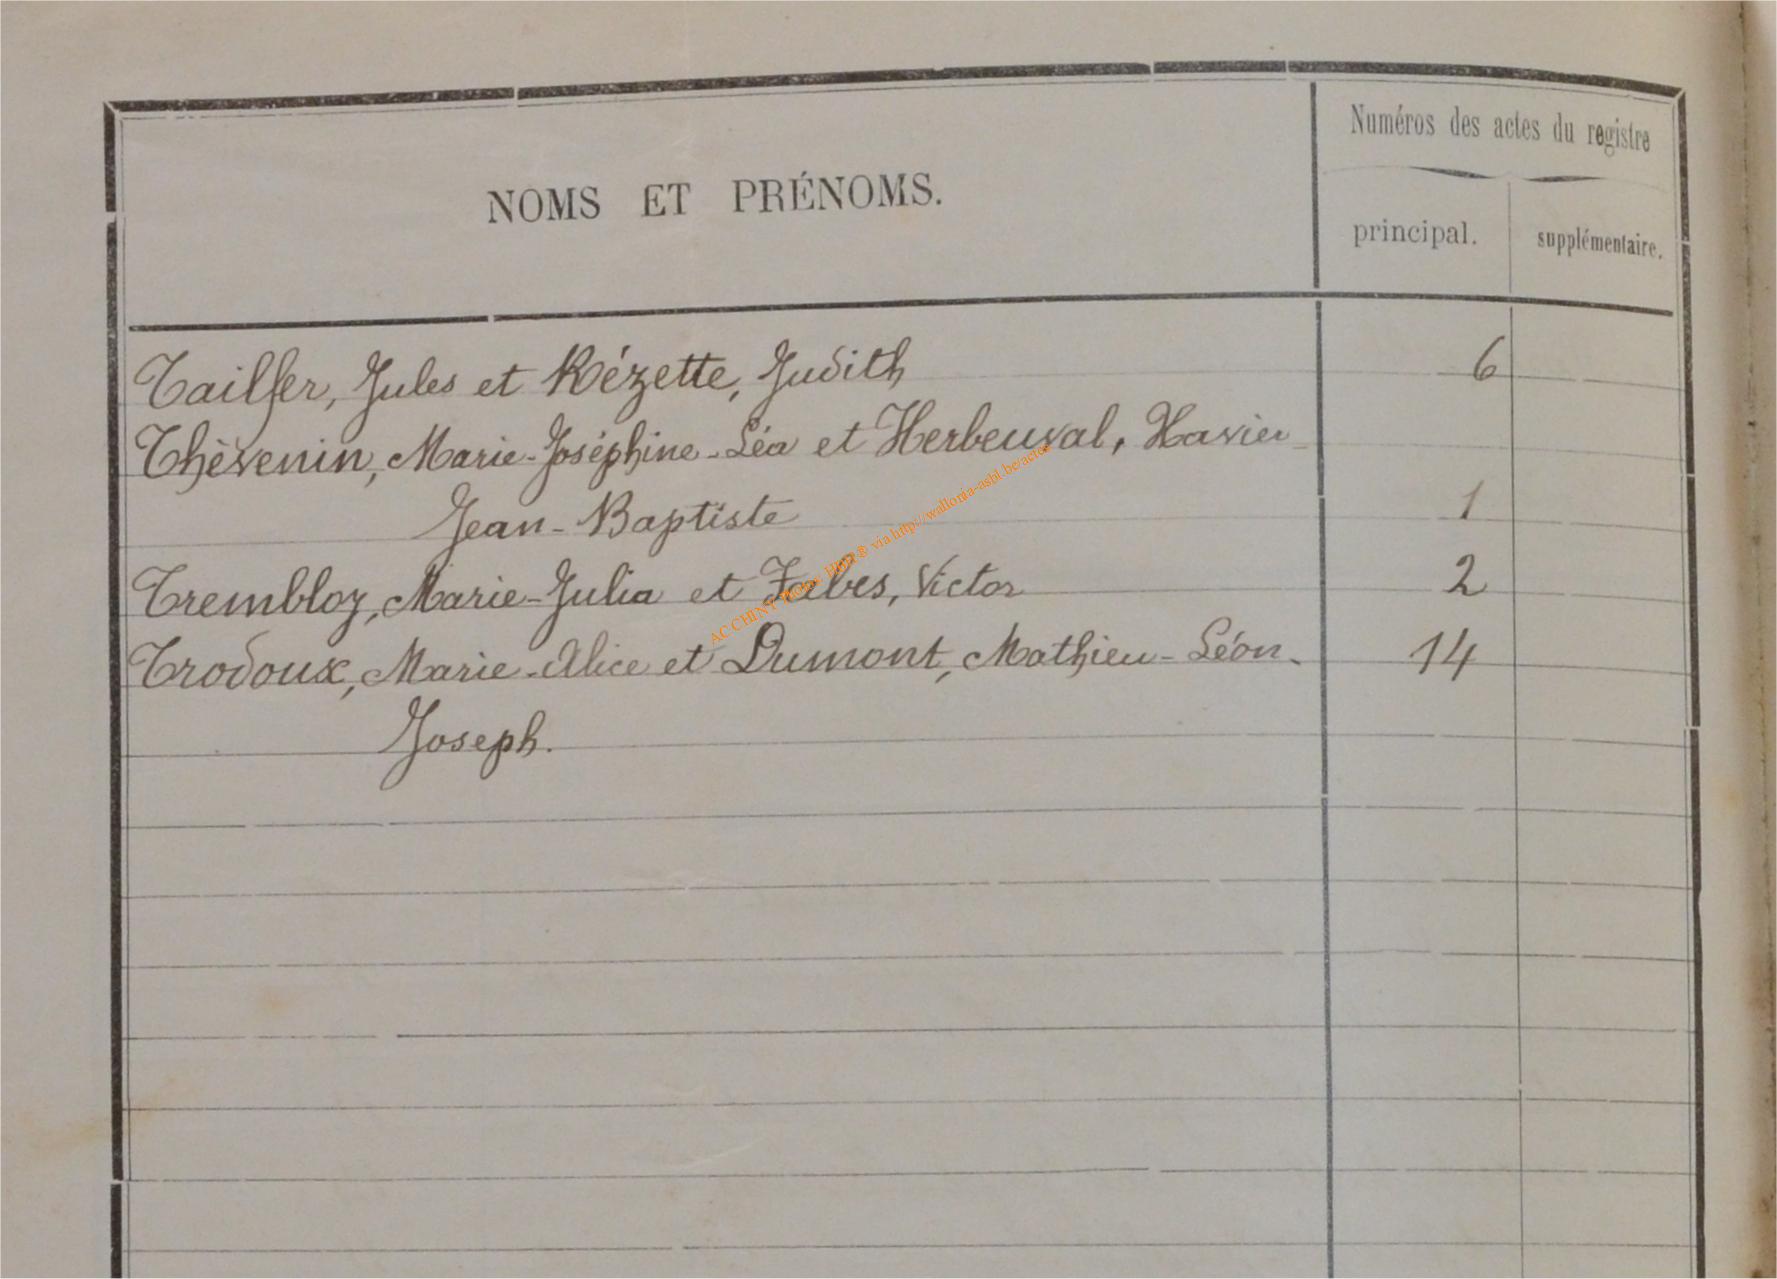 Numéros des actes du registre
NOMS ET PRÉNOMS.
principal. supplémentaire.
Tailfer, Jules et Rézette, Judith 6
Thèvenin, Marie-Joséphine-Léa et Herbeuval, Xavier-
Jean-Baptiste 1
Trembloy, Marie-Julia et Febves, Victor 2
Trodoux, Marie-Alice et Dumont, Mathieu-Léon- 14
Joseph.
AC CHINY via http://wallonia-asbl.be/actes